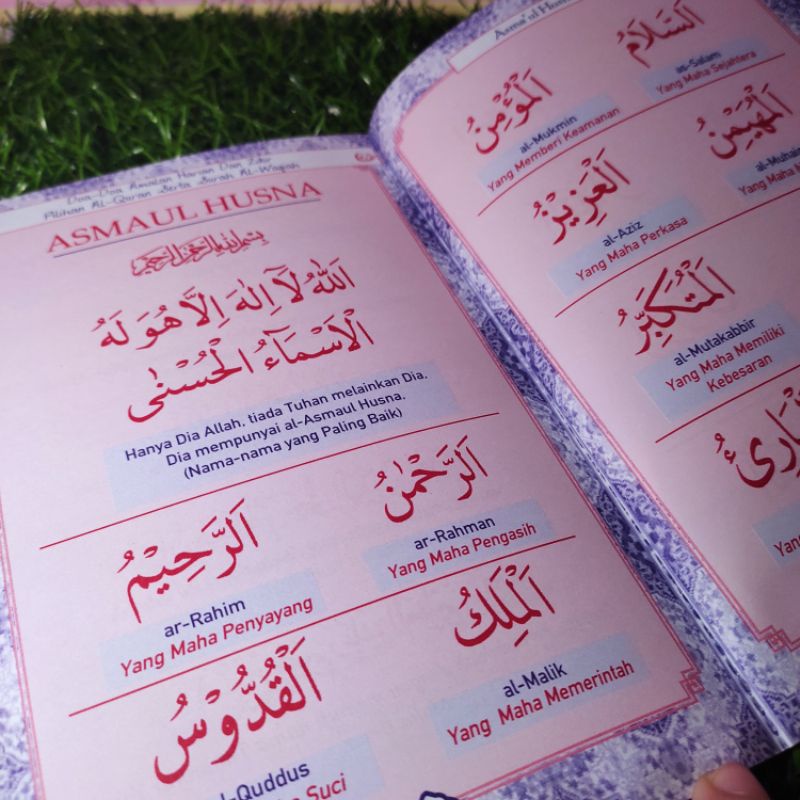 Doa-Doa Amalan Harian Dan Zikir
Pilihan Al-Quran Serta Surah Al-Waqiah
ASMAUL HUSNA
بسم الله الرحمن الرحيم
اَللّٰهُ لَآ اِلٰهَ اِلَّا هُوَ لَهُ
الْاَسْمَآءُ الْحُسْنٰى
Hanya Dia Allah, tiada Tuhan melainkan Dia.
Dia mempunyai al-Asmaul Husna.
(Nama-nama yang Paling Baik)
اَلرَّحْمٰنُ
ar-Rahman
Yang Maha Pengasih
اَلرَّحِيْمُ
ar-Rahim
Yang Maha Penyayang
اَلْمَلِكُ
al-Malik
Yang Maha Memerintah
اَلْقُدُّوْسُ
al-Quddus
Suci
Asma'ul
اَلسَّلَامُ
as-Salam
Yang Maha Sejahtera
اَلْمُؤْمِنُ
al-Mukmin
Yang Memberi Keamanan
اَلْمُهَيْمِنُ
Yang Maha
اَلْعَزِيْزُ
al-Aziz
Yang Maha Perkasa
اَلْمُتَكَبِّرُ
al-Mutakabbir
Yang Maha Memiliki
Kebesaran
Yang